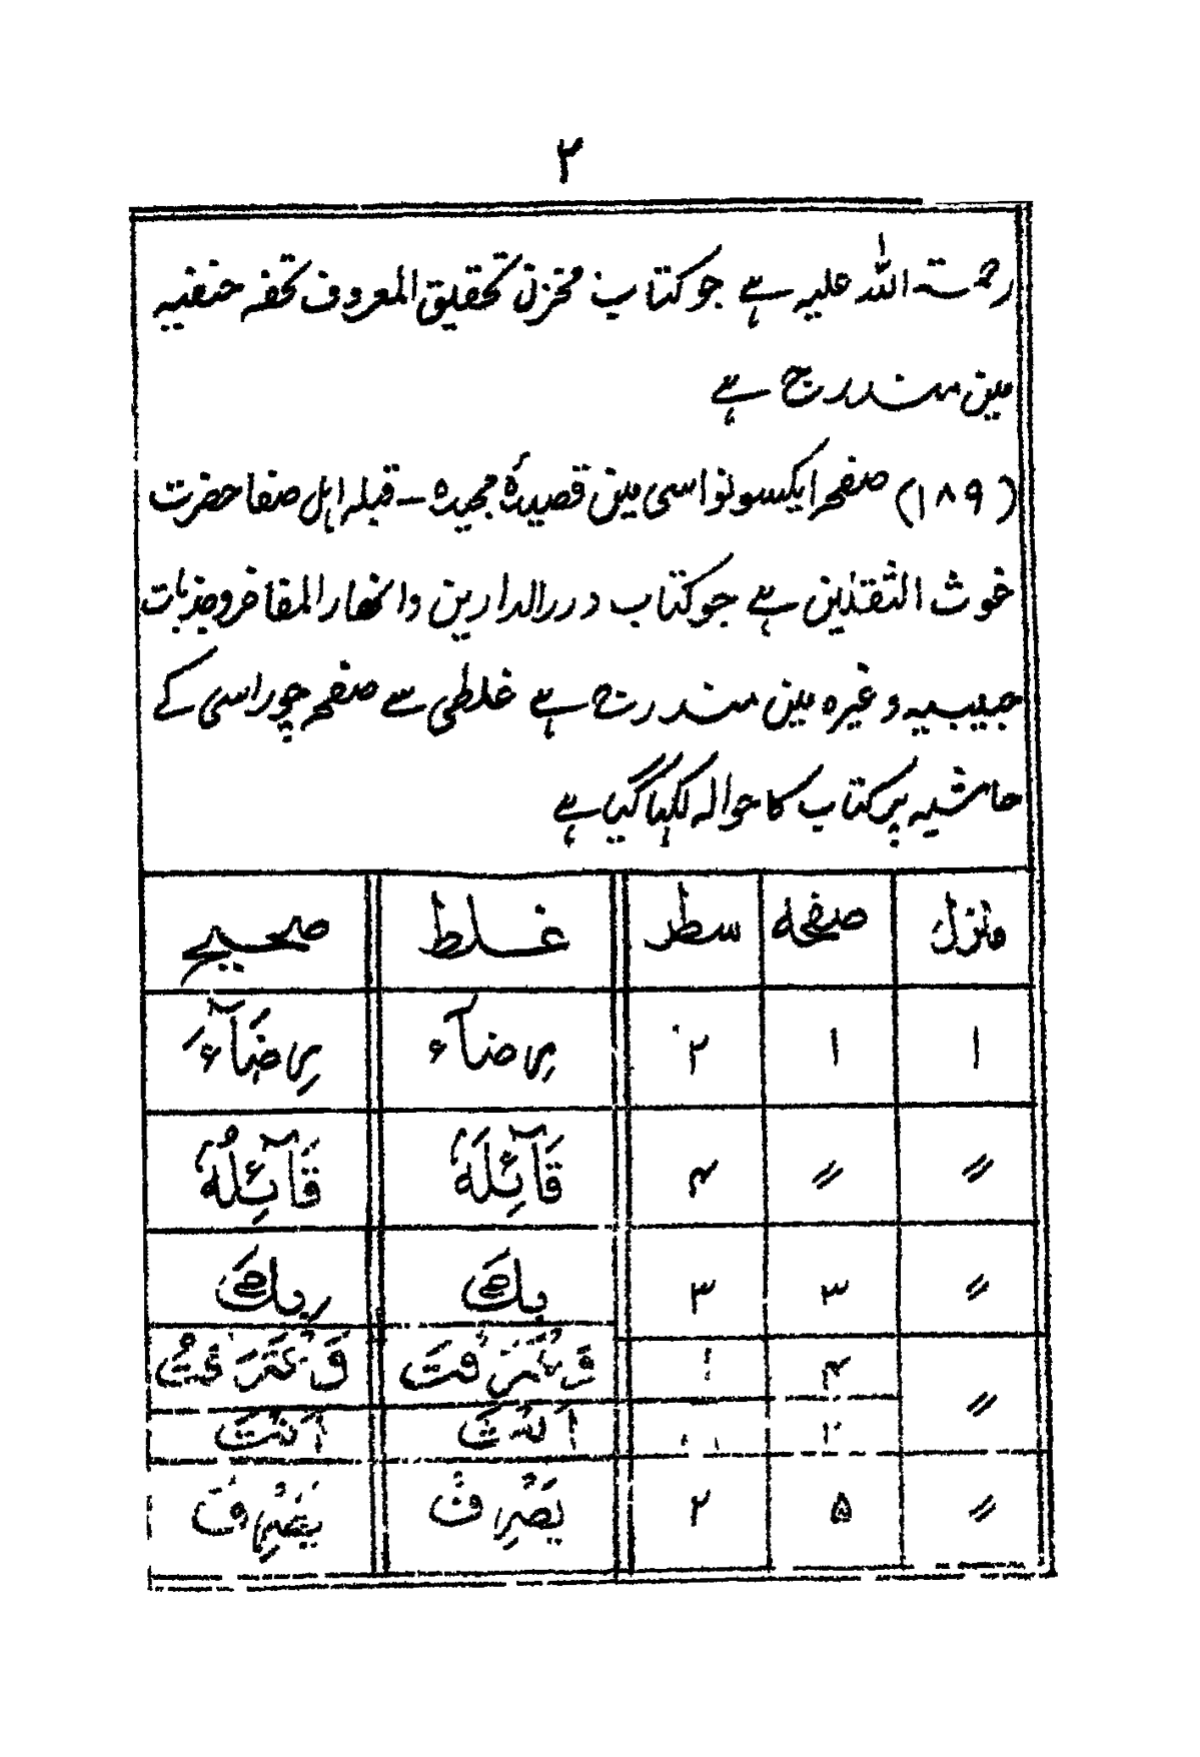 ۲
رحمتہ اللہ علیہ ہے جو کتاب مخزن تحقیق المعروف تحفہ حنفیہ
مین مندرج ہے
(۱۸۹) صفحہ ایکسو نواسی مین قصیدۂ مجیدہ - قبلہ اہل صفا حضرت
غوث الثقلین ہے جو کتاب درر الدارین و انہار المفاخر و جذبات
حبیبیہ وغیرہ مین مندرج ہے غلطی سے صفحہ چوراسی کے
حاشیہ پر کتاب کا حوالہ لکہا گیا ہے
منزل صفحہ سطر غلط صحیح
۱ ۱ ۲ برضآء برِضَآءَ
〃 〃 ۴ قَآئِلَهٗ قَآئِلُهٗ
〃 ۳ ۳ بِكَ رَبِكَ
〃 ۴
۵ ۲ يَصْرِفُ يَصْرِفُ